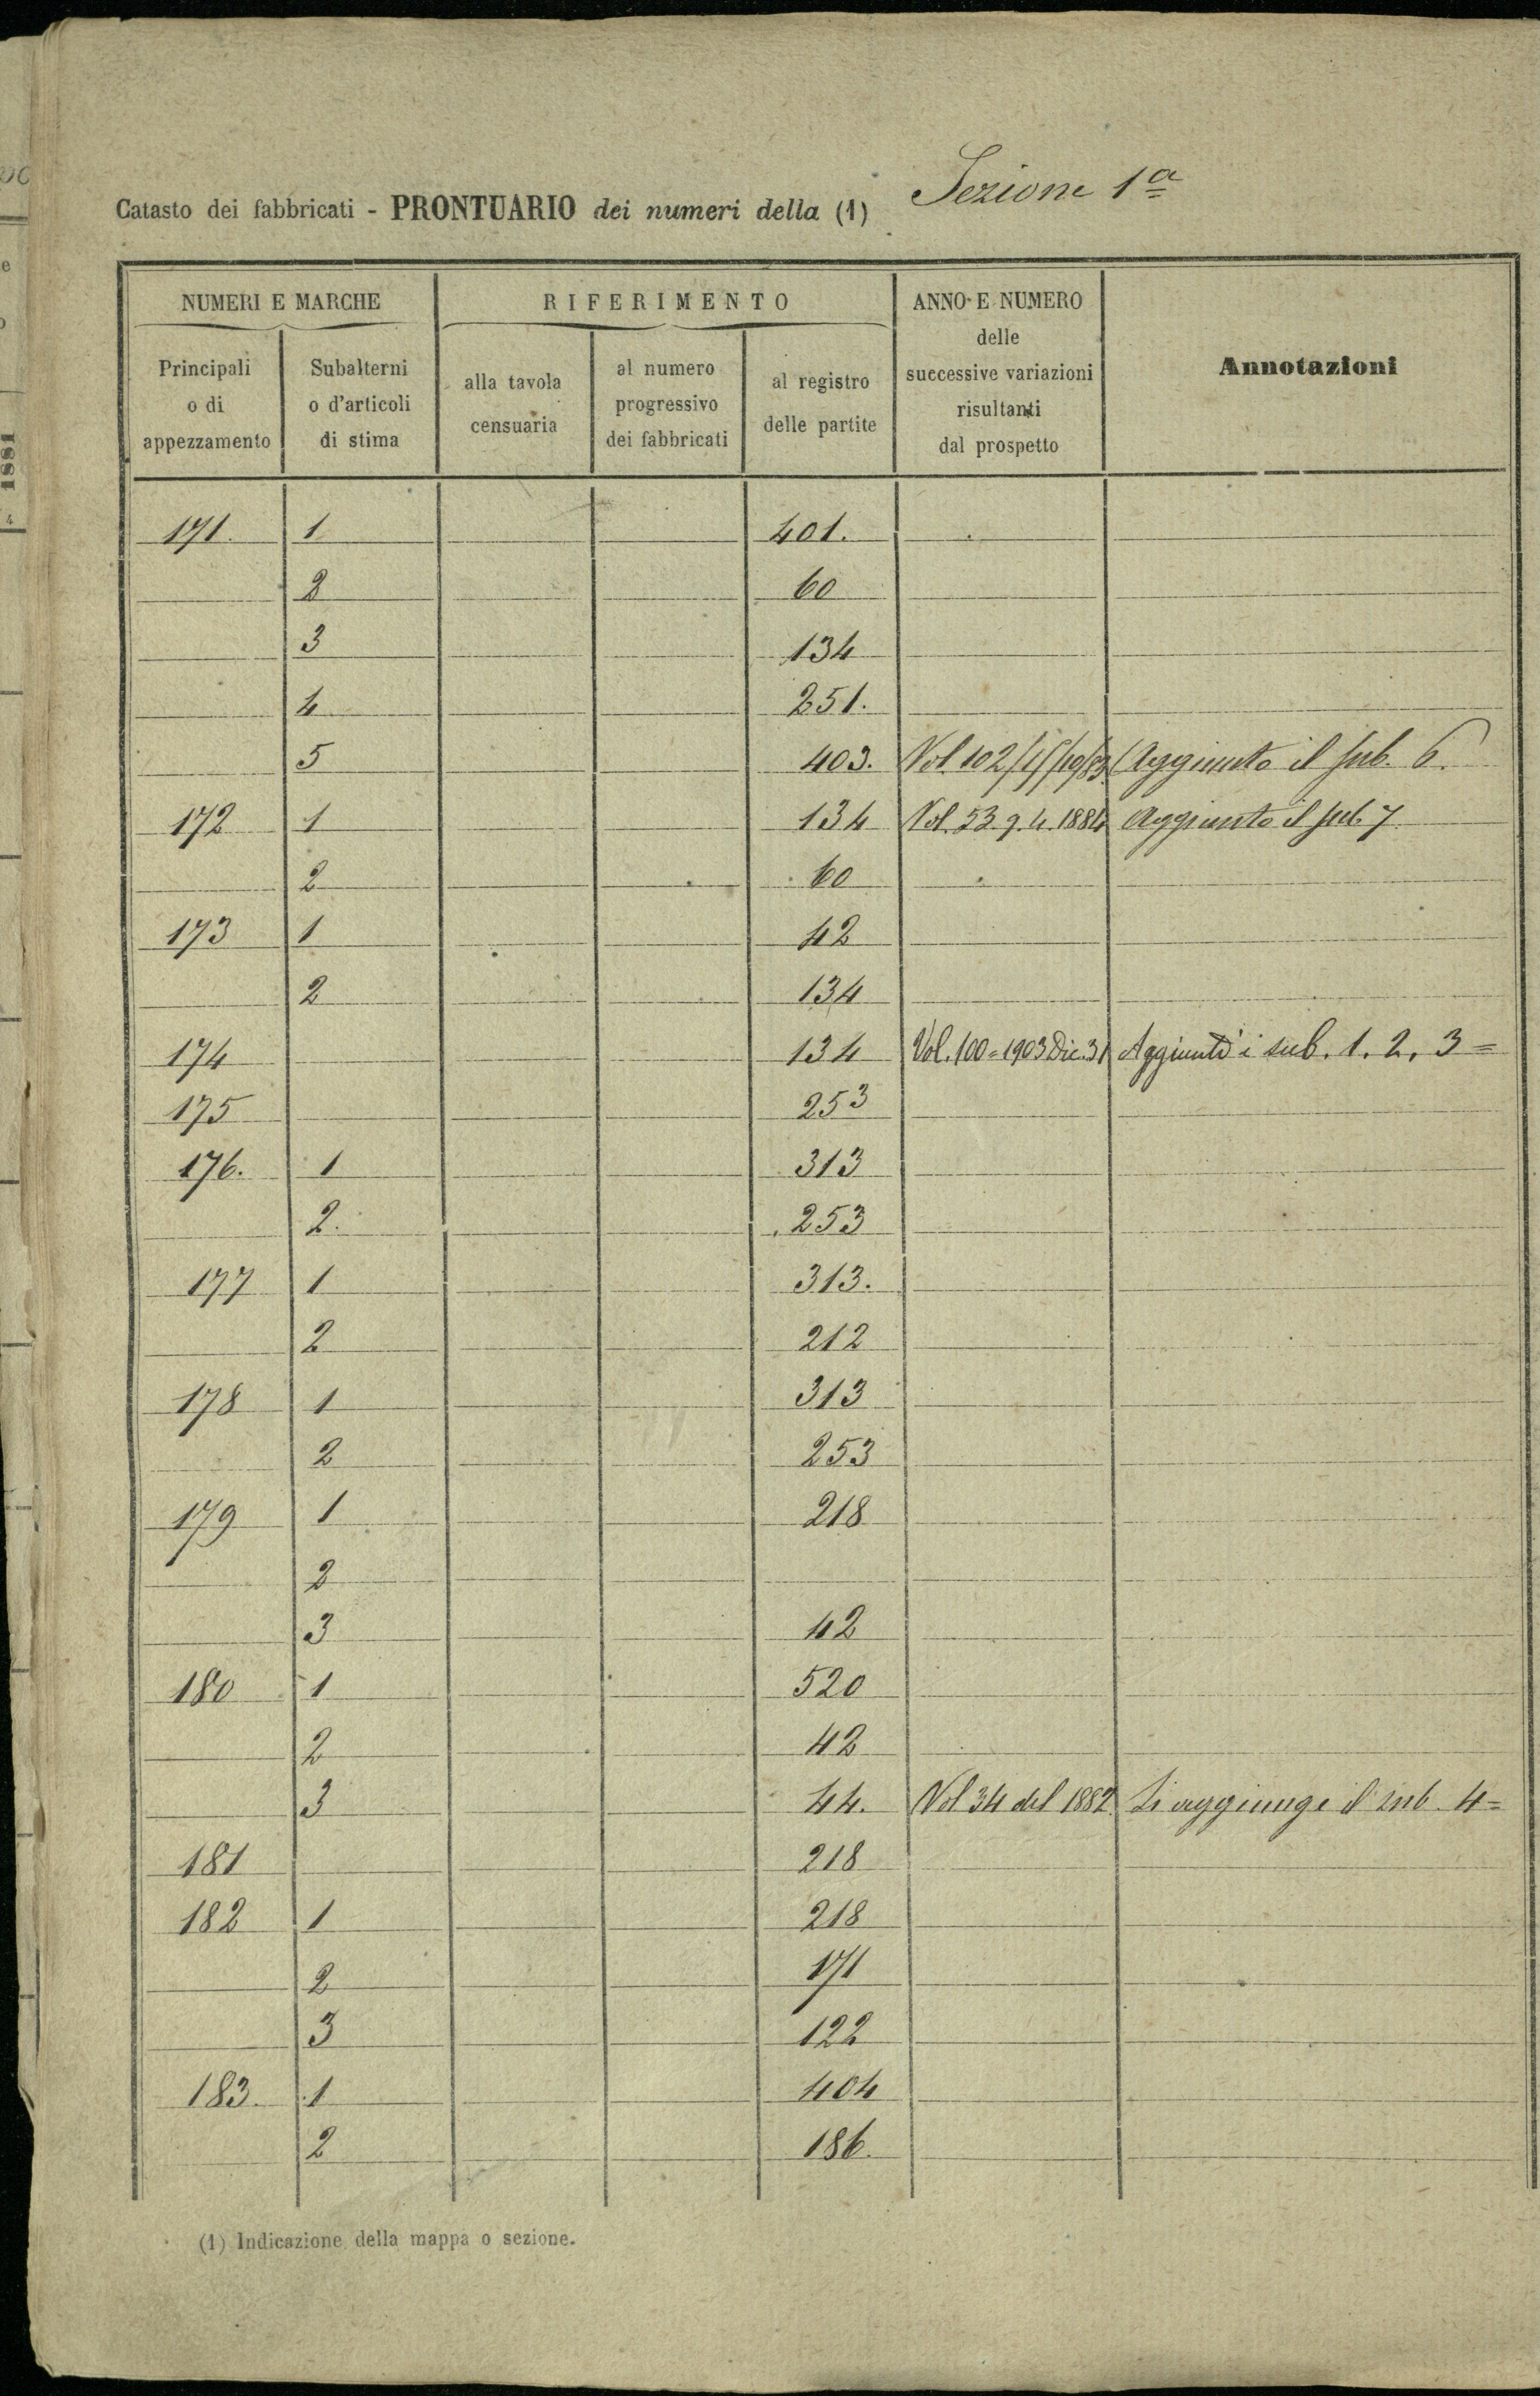 Catasto dei fabbricati - PRONTUARIO dei numeri della (1) Sezione 1ª
NUMERI E MARCHE RIFERIMENTO ANNO E NUMERO delle successive variazioni risultanti dal prospetto Annotazioni
Principali o di appezzamento Subalterni o d'articoli di stima alla tavola censuaria al numero progressivo dei fabbricati al registro delle partite
171. 1 401.
2 60
3 134
4 251.
5 403. Vol. 102 Aggiunto il sub. 6.
172 1 134 Vol. 53 9.4.1884 Aggiunto il sub 7.
2 60
173 1 42
2 134
174 134 Vol. 100=1903 Dic. 31 Aggiunti i sub. 1. 2, 3=
175 253
176. 1 313
2. 253
177 1 313.
2 212
178 1 313
2 253
179 1 218
2
3 42
180 1 520
2 42
3 44. Vol 34 del 1882 Si aggiunge il sub. 4=
181 218
182 1 218
2 171
3 122
183. 1 404
2 186.
(1) Indicazione della mappa o sezione.
1881